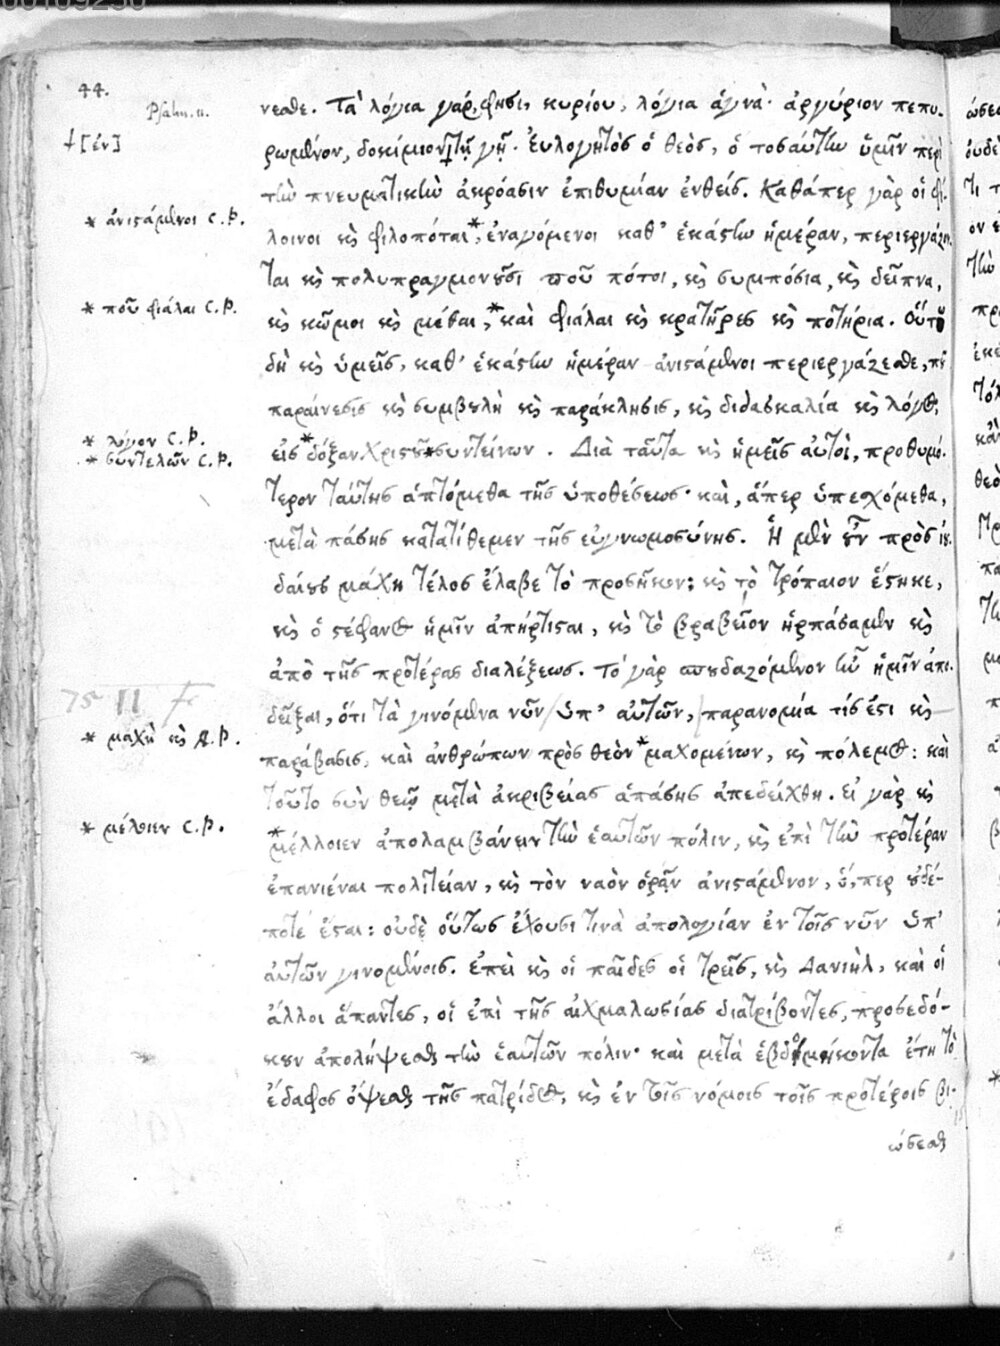 44.
Psalm. 11.
νεσθε. Τὰ λόγια γάρ, φησι, κυρίου, λόγια ἁγνὰ· ἀργύριον πεπυ-
† [ἐν]
ρωμένον, δοκίμιον † τῇ γῇ. Ἐυλογητὸς ὁ θεὸς, ὁ τοσαύτην ὑμῖν περὶ
τὴν πνευματικὴν ἀκρόασιν ἐπιθυμίαν ἐνθείς. Καθάπερ γὰρ οἱ φί-
* ἀνιστάμενοι C. P.
λοινοι καὶ φιλοπόται *, ἐναγόμενοι καθ' ἑκάστην ἡμέραν, περιεργάζον-
ται καὶ πολυπραγμονοῦσι ποῦ πότοι, καὶ συμπόσια, καὶ δεῖπνα,
* ποῦ φιάλαι C. P.
καὶ κῶμοι καὶ μέθαι, * καὶ φιάλαι καὶ κρατῆρες καὶ ποτήρια. Οὕτω
δὴ καὶ ὑμεῖς, καθ' ἑκάστην ἡμέραν ἀνιστάμενοι περιεργάζεσθε, ποῦ
παραίνεσις καὶ συμβουλὴ καὶ παράκλησις, καὶ διδασκαλία καὶ λόγος,
* λόγον C. P.
* συντελῶν C. P.
εἰς * δόξαν Χριστοῦ * συντείνων. Διὰ ταῦτα καὶ ἡμεῖς αὐτοὶ, προθυμό-
τερον ταύτης ἁπτόμεθα τῆς ὑποθέσεως· καὶ, ἅπερ ὑπεσχόμεθα,
μετὰ πάσης κατατίθεμεν τῆς εὐγνωμοσύνης. Ἡ μὲν οὖν πρὸς ἰου-
δαίους μάχη τέλος ἔλαβε τὸ προσῆκον; καὶ τὸ τρόπαιον ἕστηκε,
καὶ ὁ στέφανος ἡμῖν ἀπήρτισται, καὶ τὸ βραβεῖον ἡρπάσαμεν καὶ
ἀπὸ τῆς προτέρας διαλέξεως. Τὸ γὰρ σπουδαζόμενον ἦν ἡμῖν ἀπο-
75 11
δεῖξαι, ὅτι τὰ γινόμενα νῦν ὑπ' αὐτῶν, παρανομία τίς ἐστι καὶ
* μάχη καὶ
παράβασις, καὶ ἀνθρώπων πρὸς θεὸν * μαχομένων, καὶ πόλεμος: καὶ
τοῦτο σὺν θεῷ μετὰ ἀκριβείας ἁπάσης ἀπεδείχθη. Εἰ γὰρ καὶ
* μέλοιεν C. P.
* μέλλοιεν ἀπολαμβάνειν τὴν ἑαυτῶν πόλιν, καὶ ἐπὶ τὴν προτέραν
ἐπανιέναι πολιτείαν, καὶ τὸν ναὸν ὁρᾷν ἀνιστάμενον, ὅ, περ οὐδέ-
ποτέ ἔσται: οὐδὲ οὕτως ἔχουσι τινὰ ἀπολογίαν ἐν τοῖς νῦν ὑπ'
αὐτῶν γινομένοις. Ἐπεὶ καὶ οἱ παῖδες οἱ τρεῖς, καὶ Δανιὴλ, καὶ οἱ
ἄλλοι ἅπαντες, οἱ ἐπὶ τῆς αἰχμαλωσίας διατρίβοντες, προσεδό-
κουν ἀπολήψεσθαι τὴν ἑαυτῶν πόλιν· καὶ μετὰ ἑβδομήκοντα ἔτη τὸ
ἔδαφος ὄψεσθαι τῆς πατρίδος, καὶ ἐν τοῖς νόμοις τοῖς προτέροις βι-
ώσεσθαι